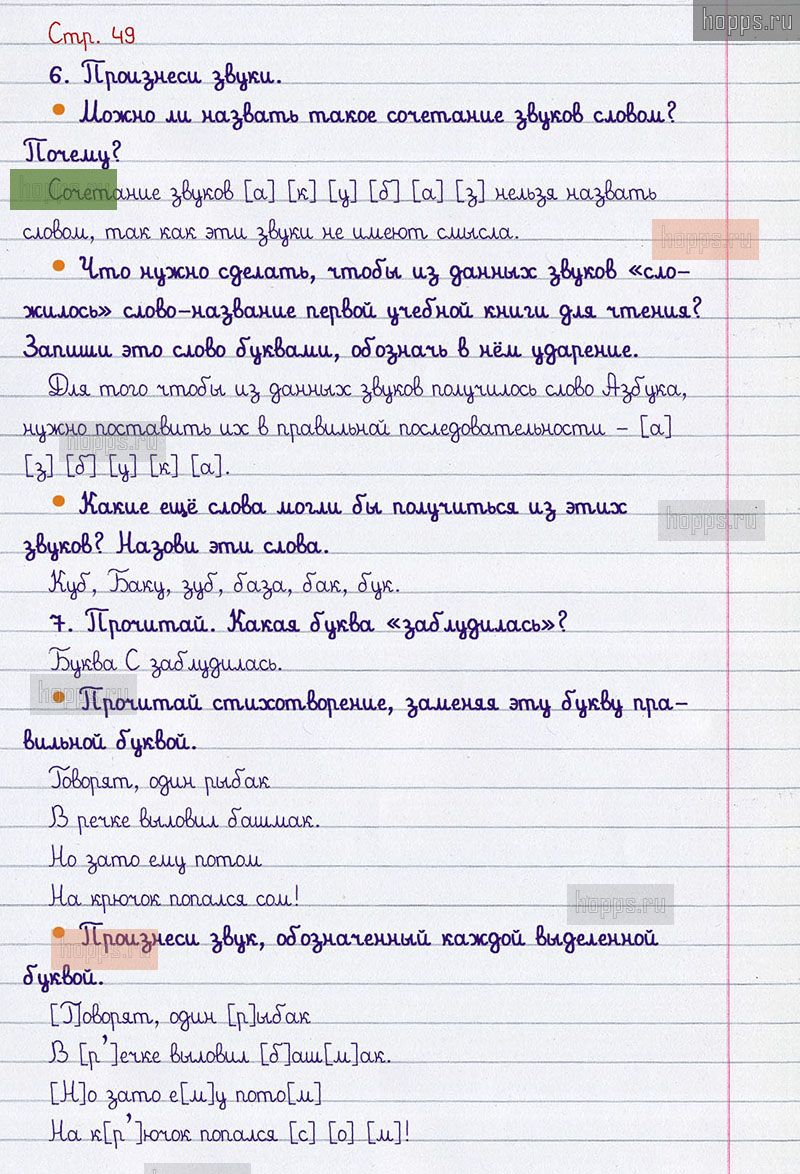 hopps.ru
Стр. 49
6. Произнеси звуки.
• Можно ли назвать такое сочетание звуков словом?
Почему?
hopps.ru
Сочетание звуков [а] [к] [у] [б] [а] [з] нельзя назвать
словом, так как эти звуки не имеют смысла.
hopps.ru
• Что нужно сделать, чтобы из данных звуков «сло-
жилось» слово-название первой учебной книги для чтения?
Запиши это слово буквами, обозначь в нём ударение.
Для того чтобы из данных звуков получилось слово Азбука,
нужно поставить их в правильной последовательности – [а]
hopps.ru
[з] [б] [у] [к] [а].
• Какие ещё слова могли бы получиться из этих
hopps.ru
звуков? Назови эти слова.
Куб, Баку, зуб, база, бак, бук.
7. Прочитай. Какая буква «заблудилась»?
Буква С заблудилась.
hopps.ru
• Прочитай стихотворение, заменяя эту букву пра-
вильной буквой.
Говорят, один рыбак
В речке выловил башмак.
Но зато ему потом
На крючок попался сом!
hopps.ru
• Произнеси звук, обозначенный каждой выделенной
hopps.ru
буквой.
[Г]оворят, один [р]ыбак
В [р’]ечке выловил [б]аш[м]ак.
[Н]о зато е[м]у пото[м]
На к[р’]ючок попался [с] [о] [м]!